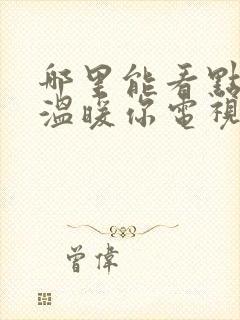 哪里能看點
溫暖你電視
曾偉